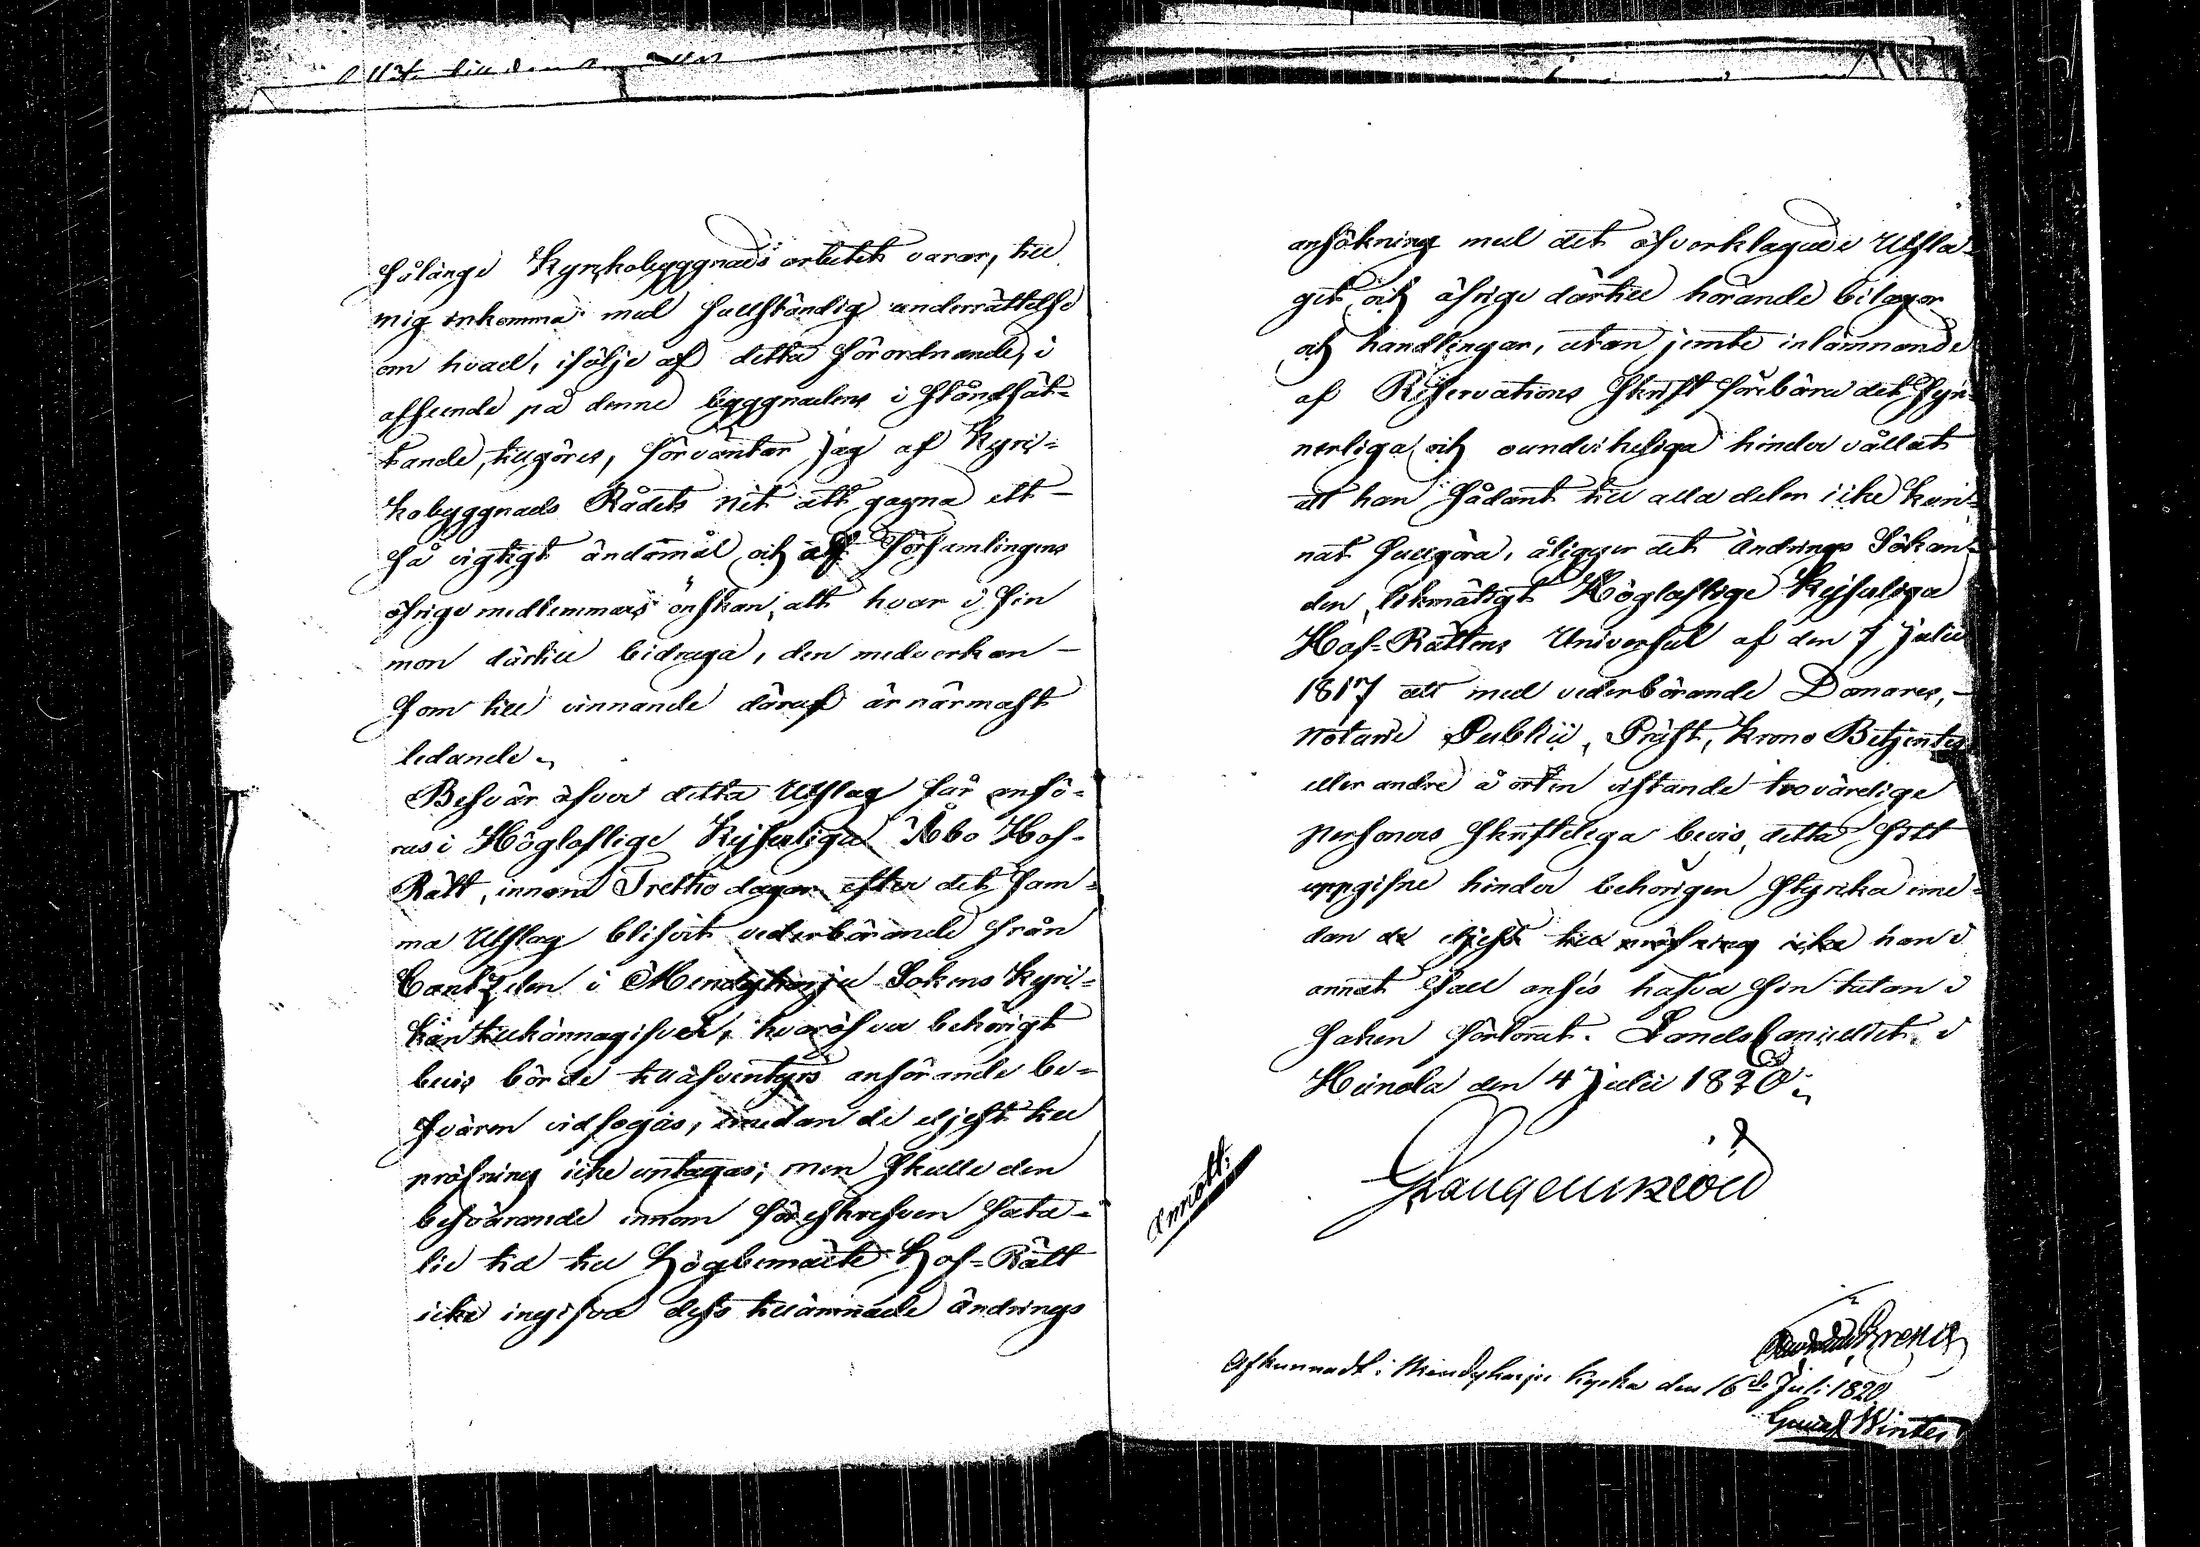 sålänge Kyrkobyggnads arbetet varar, till
mig inkomma med fullständig underrättelse
om hvad, ifölje af detta förordnande, i
afseende på denne byggnadens i ståndsät-
tande, tillgöres, förväntar jag af Kyr-
kobyggnads Rådets nit att gagna ett
så vigtigt ändamål och af församlingens
öfrige medlemmars önskan, att hvar i sin
mon därtill bidraga, den medverkan
som till vinnande däraf är närmast
ledande.
Besvär öfver detta Utslag får anfö-
ras i Högloflige Kejserliga Åbo Hof-
Rätt, innom Trettio dagar efter det sam-
ma Utslag blifvit vederbörande från
Cantzelen i Mendyharju Sokens Kyr-
ka tillkännagifvet, hvaröfver behörigt
bevis börde tilläfventyrs anförande be-
svären vidfogas, emedan de eljest till
pröfning icke antagas; men skulle den
besvärande innom föreskrefven fata-
lie tid till Högbemälte Hof-Rätt
icke ingifva dess tillämnade ändrings
ansökning med det öfverklagade Utsla-
get och öfrige därtill hörande bilagor
och handlingar, utan jemte inlämnande
af Reservations skrift förebära det syn-
nerliga och oundvikeliga hinder vållat
att han sådant till alla delar icke kun-
nat fullgöra, åligger det Ändrings Sökan-
den, likmätigt Högloflige Kejserliga
Hof-Rättens Universal af den 7 Julii
1817 att med vederbörande Domares,
Notarie Publici, Präst, Krono Betjentes
eller andre å orten vistande trovärdige
personers skriftelige bevis, detta sitt
uppgifne hinder behörigen styrka eme-
dan de eljest till pröfning icke han i
annat fall anses hafva sin talan i
saken förlorat. Lands Cancelliet i
Heinola den 4 Julii 1820.
Afkunnadt i Mendyharju kyrka den 16de Juli 1820
Winter